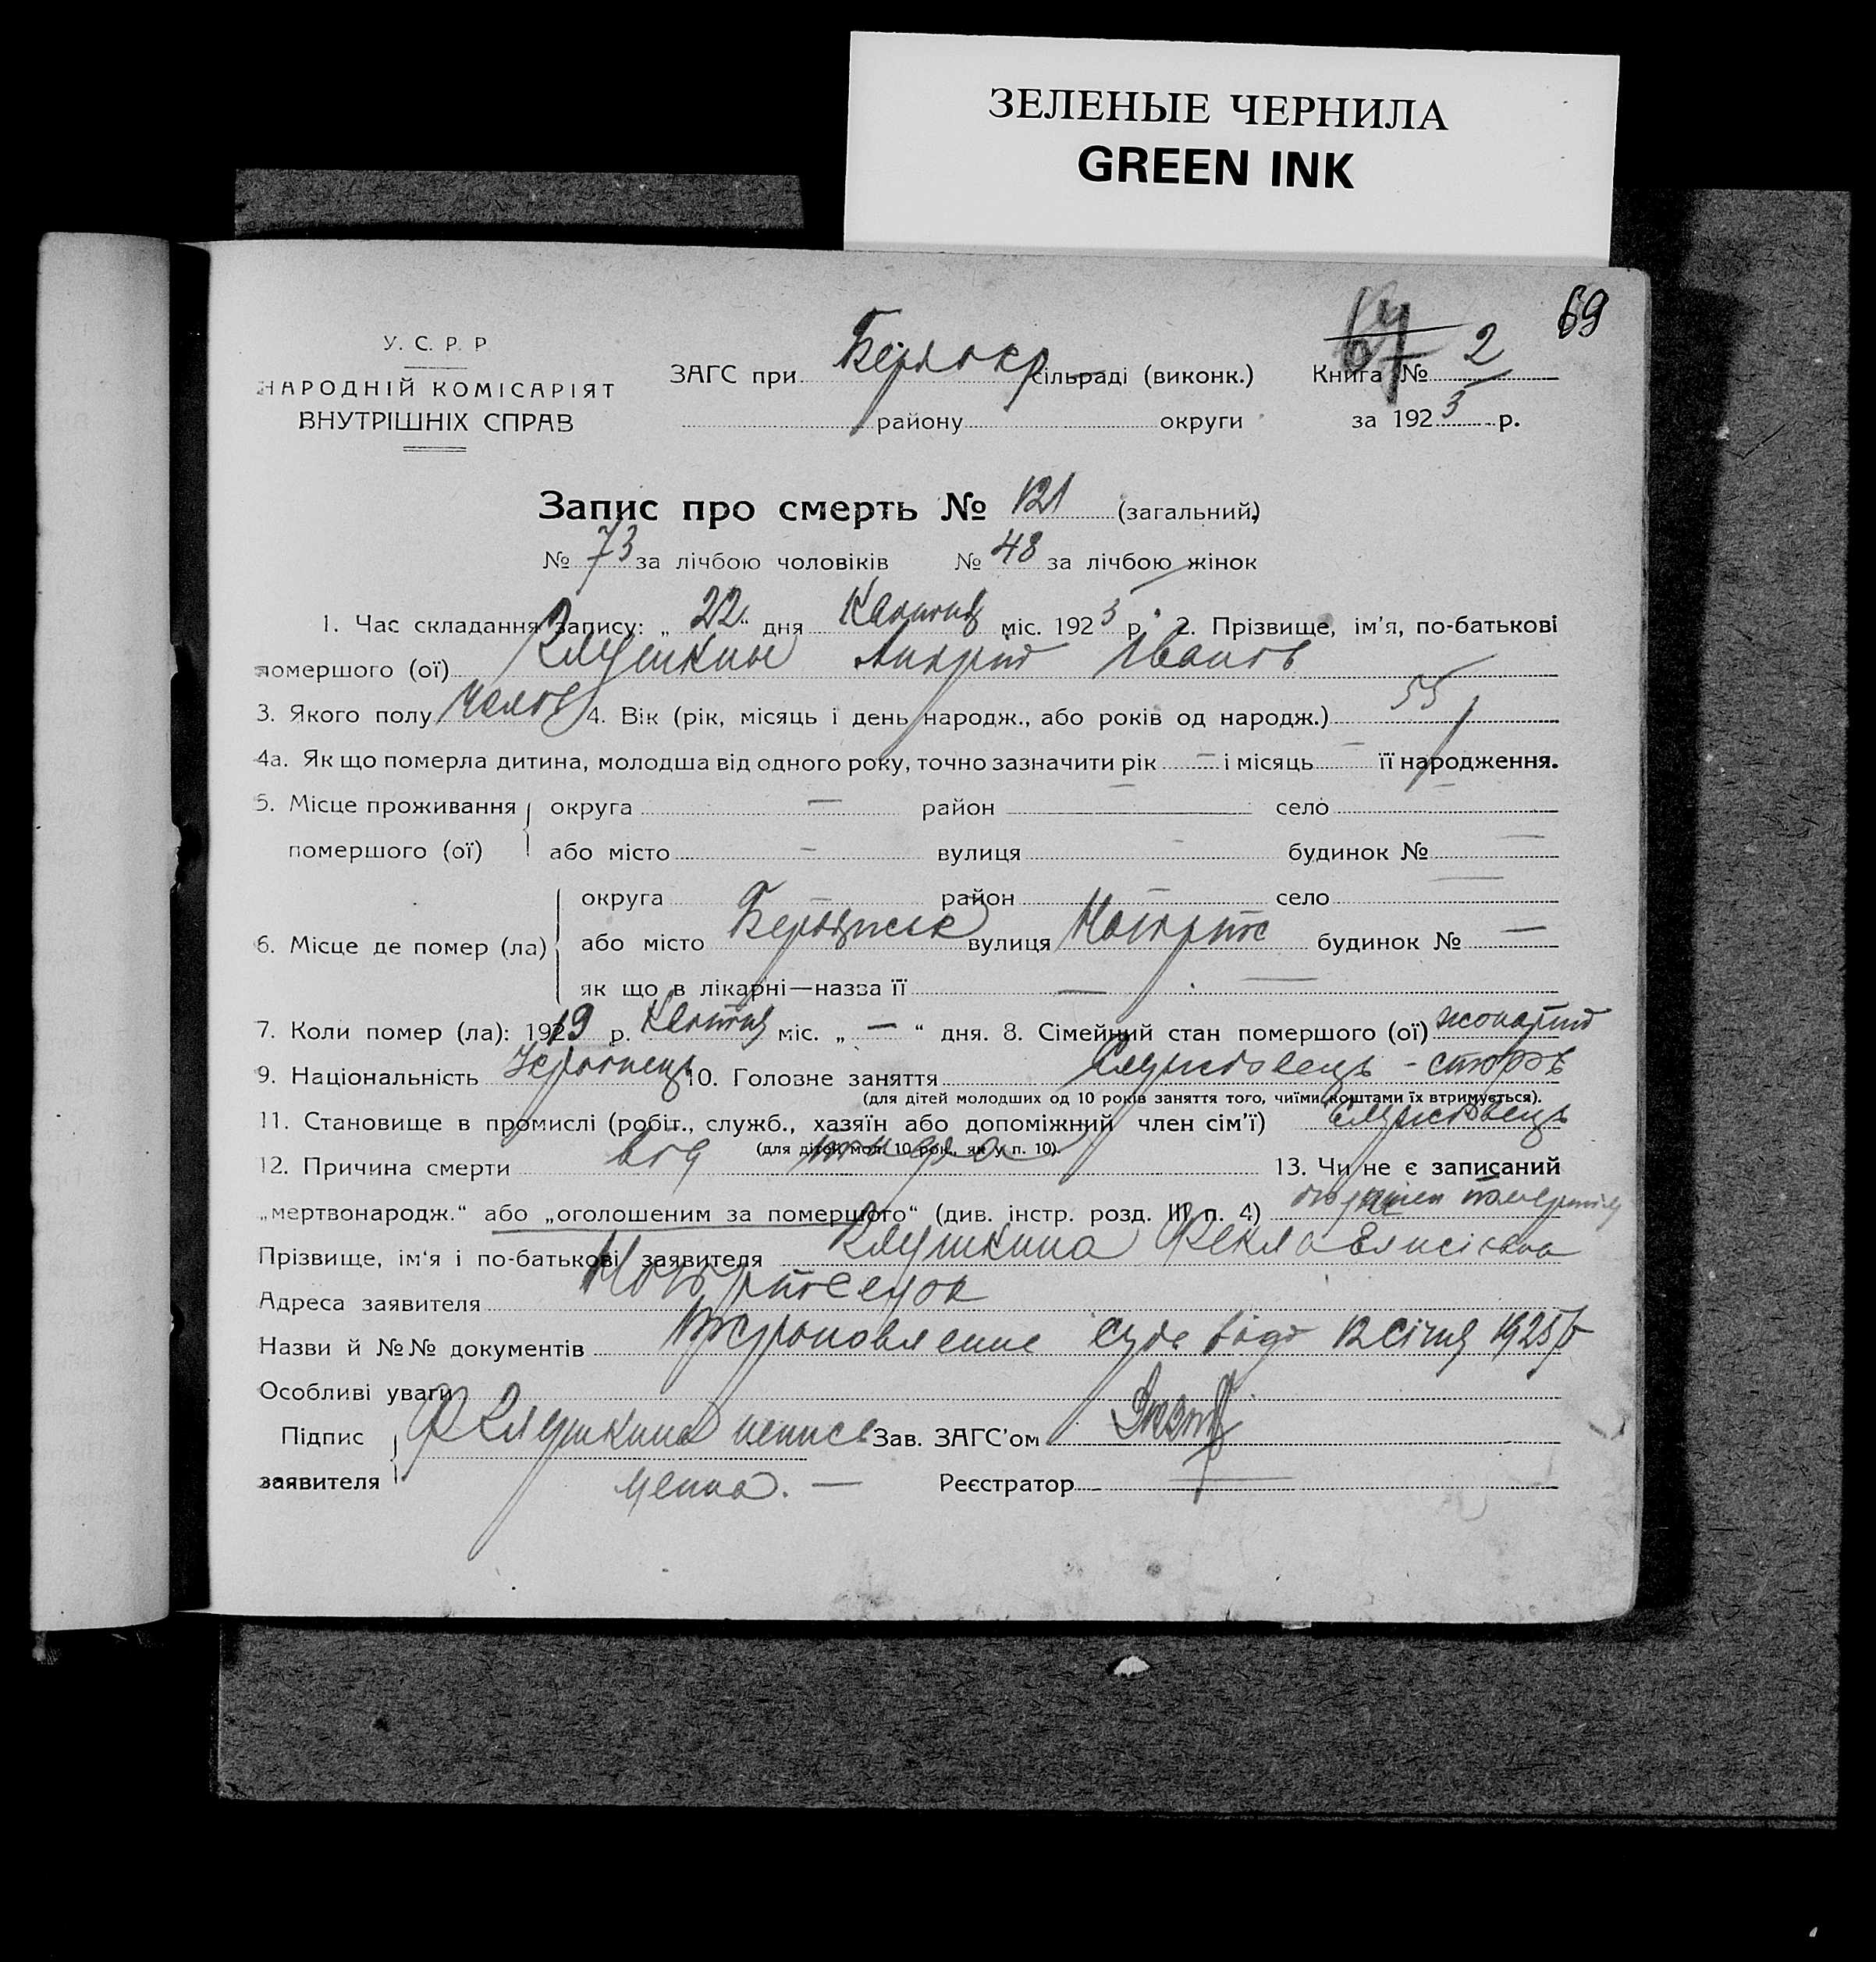 ЗЕЛЕНЫЕ ЧЕРНИЛА
GREEN INK
69
У. С. Р. Р
НАРОДНІЙ КОМІСАРІЯТ
ВНУТРІШНІХ СПРАВ
ЗАГС при сільраді (виконк.) Книга № 2
району округи за 1925 р.
Запис про смерть № 121 (загальний)
№ 73 за лічбою чоловіків № 48 за лічбою жінок
1. Час складання запису: „ 22 “ дня Квітня міс. 1925 р. 2. Прізвище, ім'я, по-батькові
помершого (ої) Андрій Іванов
3. Якого полу 4. Вік (рік, місяць і день народж., або років од народж.) 55
4а. Як що померла дитина, молодша від одного року, точно зазначити рік — і місяць — її народження.
5. Місце проживання округа — район — село —
помершого (ої) або місто — вулиця — будинок № —
округа — район — село —
6. Місце де помер (ла) або місто Бердянськ вулиця будинок № —
як що в лікарні—назва її —
7. Коли помер (ла): 1919 р. Квітня міс. „ — “ дня. 8. Сімейний стан помершого (ої) жонатий
9. Національність Українець 10. Головне заняття Службовець - сторож
(для дітей молодших од 10 років заняття того, чиїми коштами їх втримується).
11. Становище в промислі (робіт., служб., хазяїн або допоміжний член сім'ї) Службовець
(для дітей мол. 10 рок., як у п. 10).
12. Причина смерти від тифа 13. Чи не є записаний
„мертвонародж.“ або „оголошеним за помершого“ (див. інстр. розд. III п. 4)
Прізвище, ім'я і по-батькові заявителя Фекла
Адреса заявителя
Назви й №№ документів суда від 12 січня 1925 р
Особливі уваги
Підпис Зав. ЗАГС'ом
заявителя менна. — Реєстратор